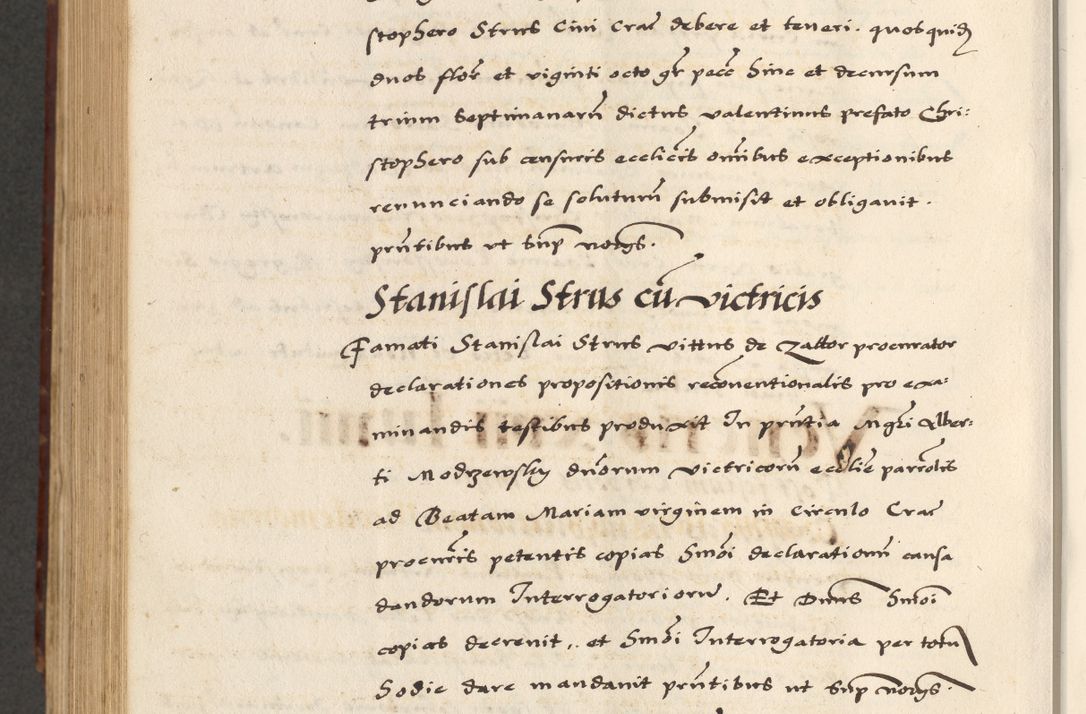 stophero Strus Civi Crac̄ debere et teneri. quosquid
duos flor̄ et viginti octo gr̄ pecc̄ hinc et decursum
trium Septimanarū dictus valentinus prefato Chri:
stophero sub censuris eccl̄icis om̄ibus exceptionibus
renunciando se soluturū submisit et obligauit.
pn̄tibus vt sup̄
Stanislai Strus cū victricis
Famati Stanislai Strus de Zator procurator
declarationes propositionis recōventionalis pro exa:
minandis testibus produxit In pn̄tia Mgr̄i Alber:
ti Modrzewsky dn̄orum victricorū eccl̄ie parrōlis
ad Beatam Mariam virginem in Circulo Crac̄
procur̄is petentis copias hmōi declarationū causa
dandorum Interrogatoriorū. Et Dn̄us hmōi
copias decreuit,. et hmōi Interrogatoria per totū
hodie dare mandauit pn̄tibus ut sup̄